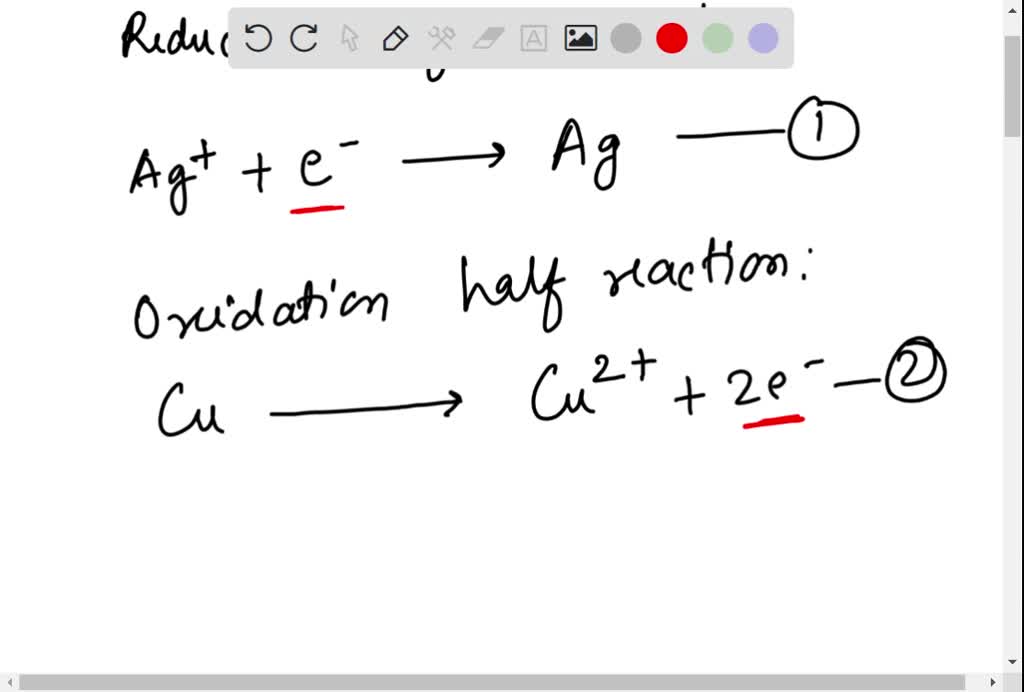 Ag⁺ + e⁻ ⟶ Ag — ①
Oxidation half reaction:
Cu ⟶ Cu²⁺ + 2e⁻ — ②